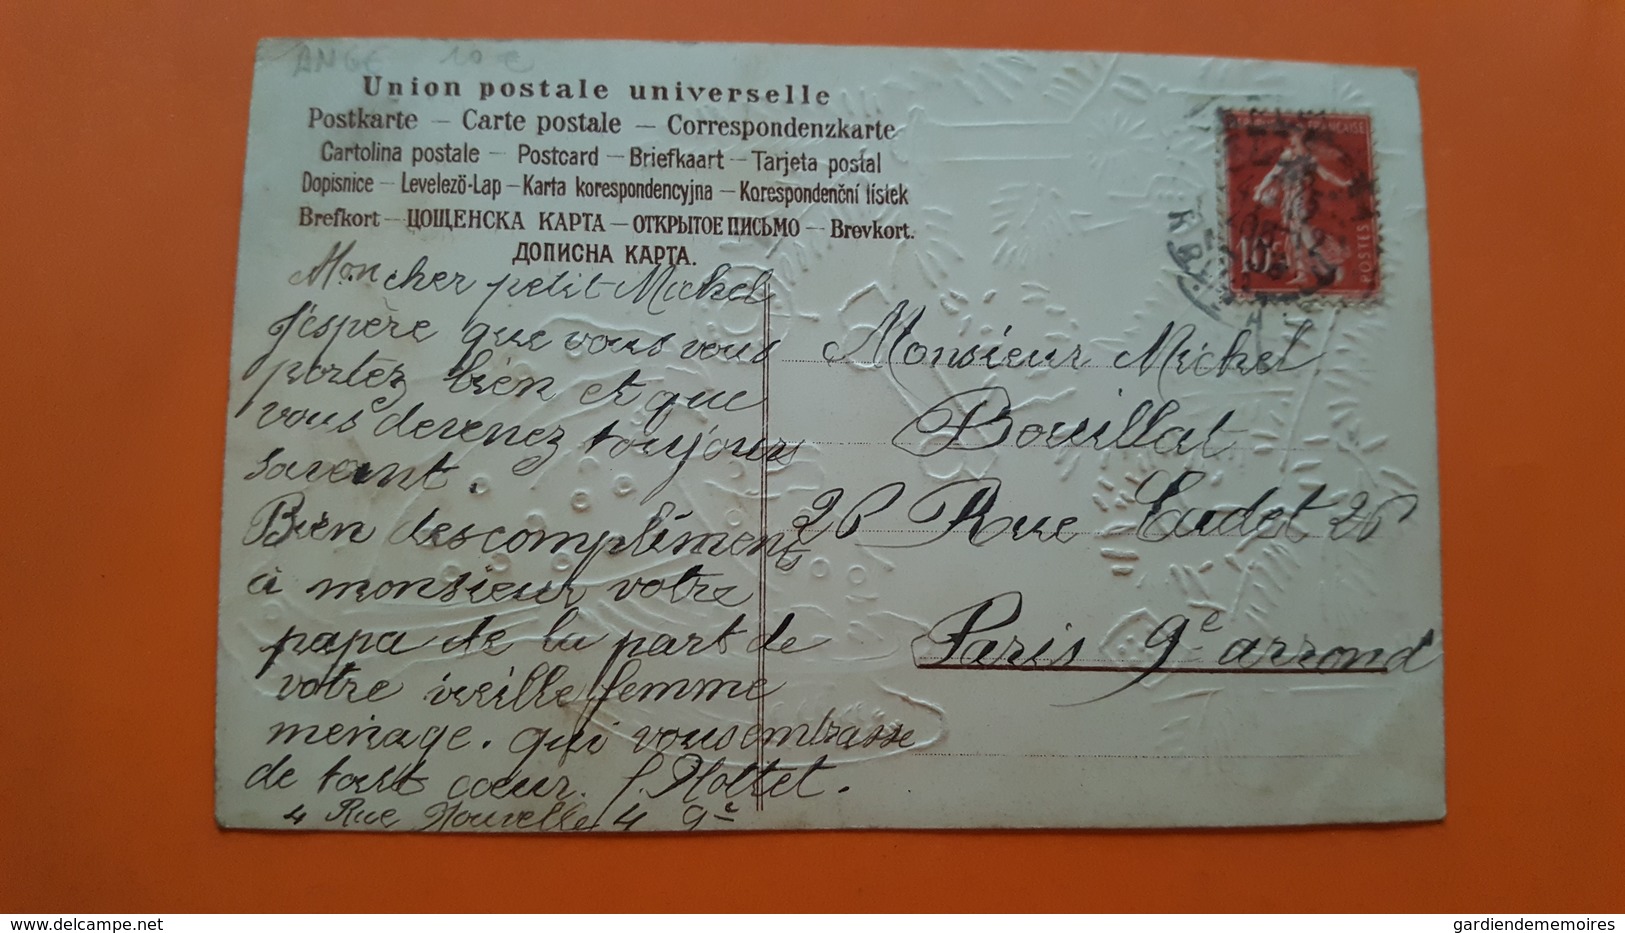 ANGE 10 €
Union postale universelle
Postkarte – Carte postale – Correspondenzkarte
Cartolina postale – Postcard – Briefkaart – Tarjeta postal
Dopisnice – Levelezö-Lap – Karta korespondencyjna – Korespondenční lístek
Brefkort – ЦОЩЕНСКА КАРТА – ОТКРЫТОЕ ПИСЬМО – Brevkort.
ДОПИСНА КАРТА.
FRANÇAISE
10c
POSTES
Mon cher petit Michel
J'espère que vous vous
portez bien et que
vous devenez toujours
savant.
Bien des compliments
à monsieur votre
papa de la part de
votre vieille femme
menage. qui vous embrasse
de tout coeur.
4 Rue Nouvelle 4 9e
Monsieur Michel
Bouillat
26 Rue Cadet 26
Paris 9e arrond
gardiendememoires@delcampe.net